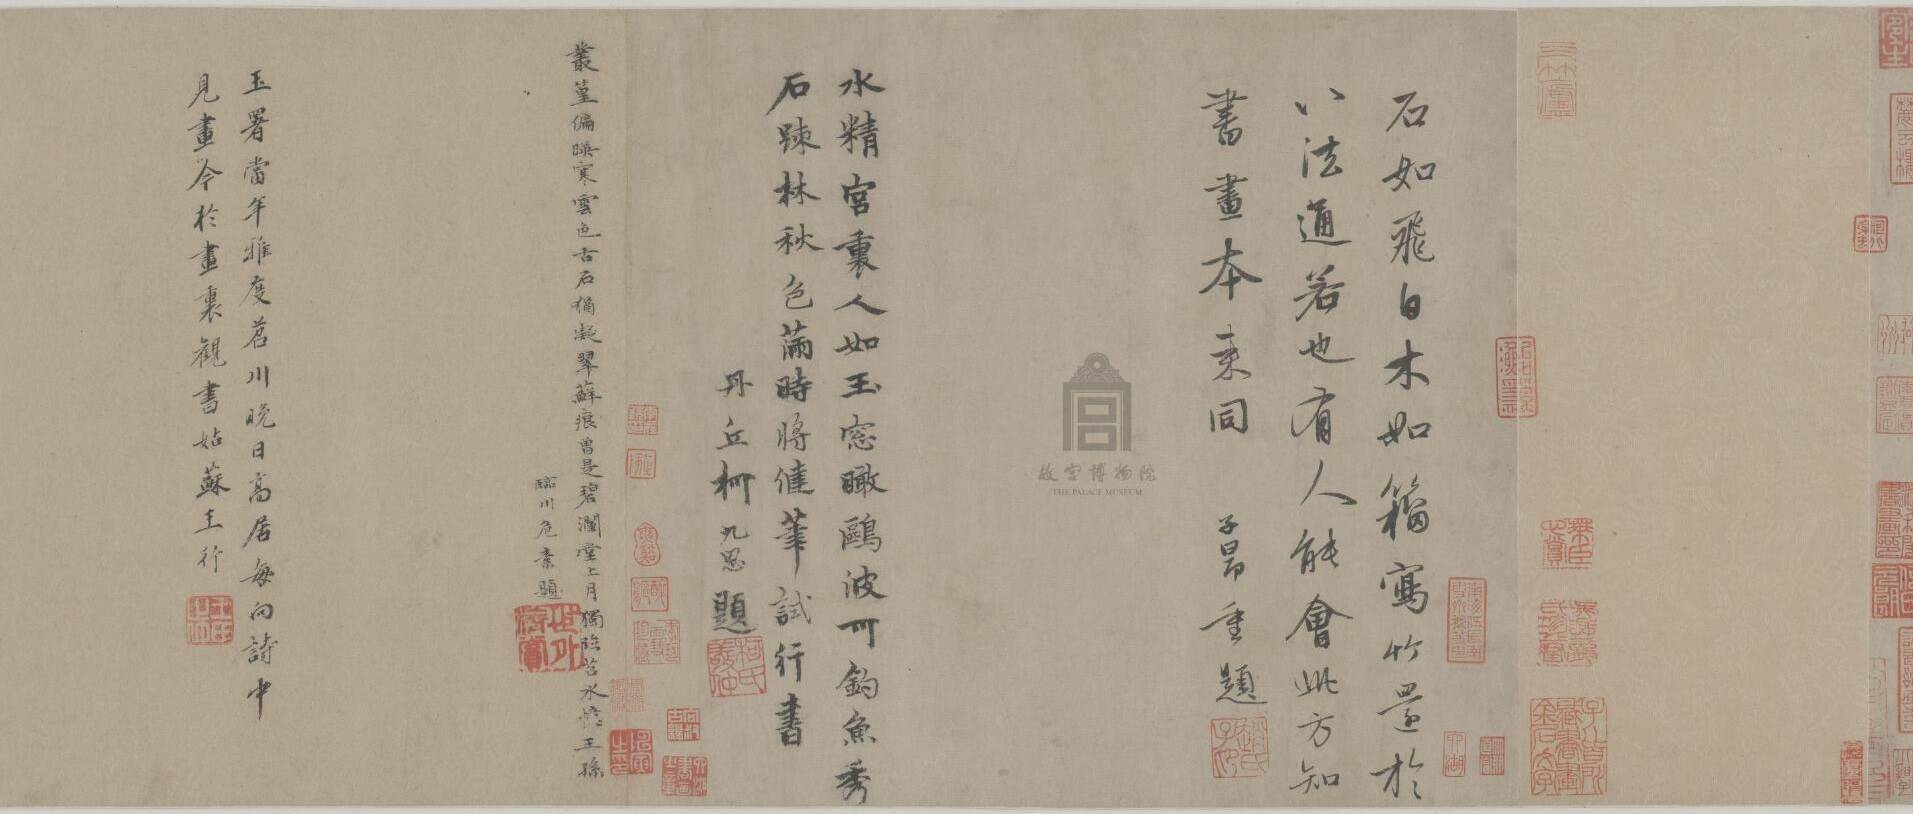 石如飛白木如籀寫竹還於
八法通若也有人能會此方知
書畫本来同
子昂重題
水精宮裏人如玉窓瞰鷗波可釣魚秀
石踈林秋色滿時將健筆試行書
丹丘柯九思題
叢篁偏暎寒雲色古石猶凝翠蘚痕曾是碧瀾堂上月獨臨苕水憶王孫
臨川危素題
玉署當年雅度苕川晚日高居每向詩中
見畫今於畫裏觀書姑蘇王行
故宮博物院
THE PALACE MUSEUM